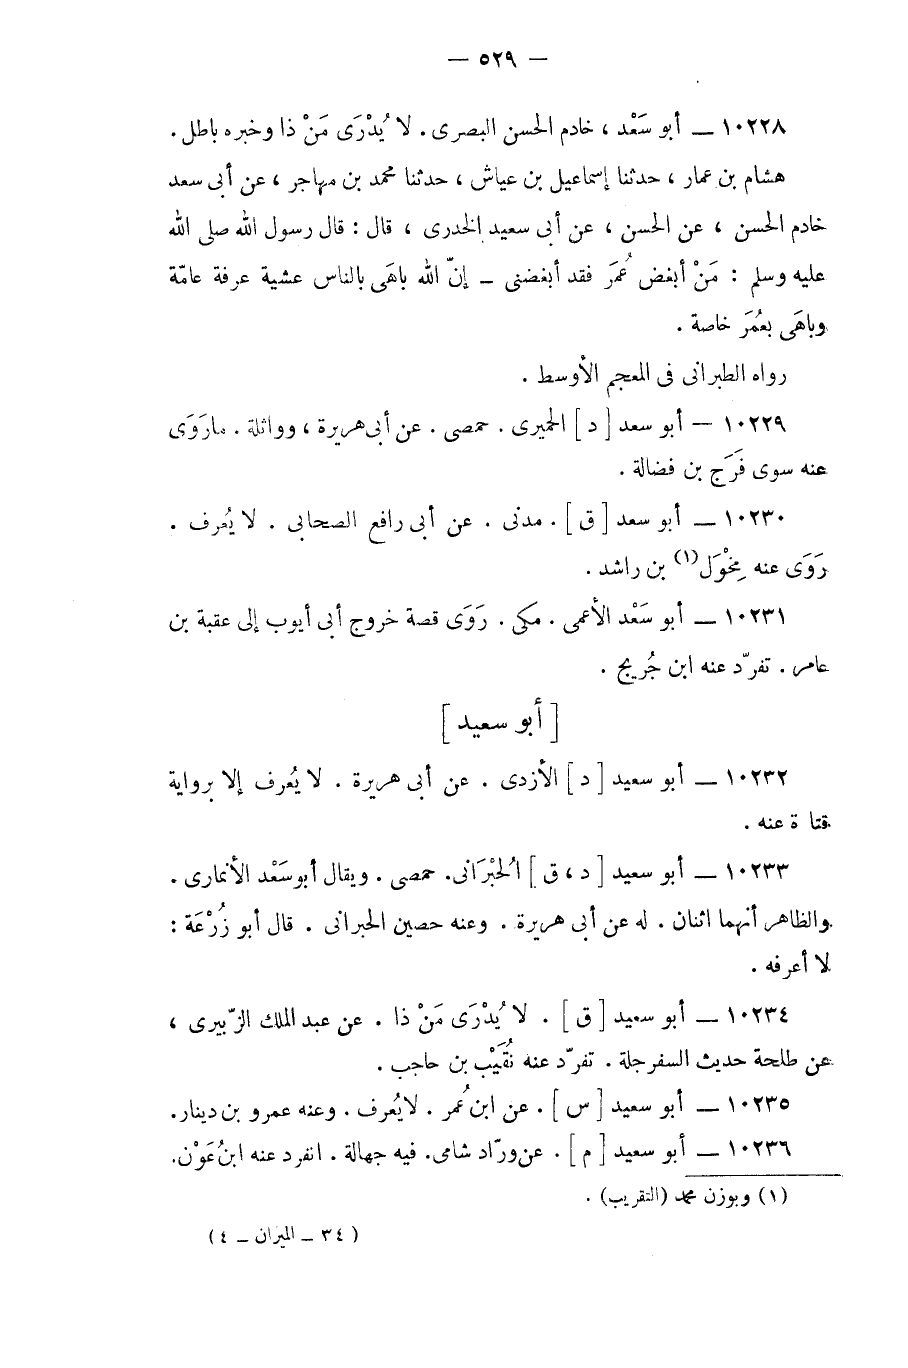 — ٥٢٩ —
١٠٢٢٨ — أبو سَعْد ، خادم الحسن البصرى . لا يُدْرَى مَنْ ذا وخبره باطل .
هشام بن عمار ، حدثنا إسماعيل بن عياش ، حدثنا محمد بن مهاجر ، عن أبى سعد
خادم الحسن ، عن الحسن ، عن أبى سعيد الخدرى ، قال : قال رسول الله صلى الله
عليه وسلم : مَنْ أبغض عُمَرَ فقد أبغضنى – إنّ الله باهَى بالناس عشية عرفة عامّة
وباهَى بعُمَرَ خاصة .
رواه الطبرانى فى المعجم الأوسط .
١٠٢٢٩ — أبو سعد [ د ] الحميرى . حمصى . عن أبى هريرة ، وواثلة . مارَوَى
عنه سوى فَرَج بن فضالة .
١٠٢٣٠ — أبو سعد [ ق ] . مدنى . عن أبى رافع الصحابى . لا يُعرف .
رَوَى عنه مِخْوَل(١) بن راشد .
١٠٢٣١ — أبو سَعْد الأعمى . مكى . رَوَى قصة خروج أبى أيوب إلى عقبة بن
عامر . تفرّد عنه ابن جُريج .
[ أبو سعيد ]
١٠٢٣٢ — أبو سعيد [ د ] الأزدى . عن أبى هريرة . لا يُعرف إلا برواية
قتا ة عنه .
١٠٢٣٣ — أبو سعيد [ د ، ق ] الُحبْرَانى. حمصى . ويقال أبو سَعْد الأنمارى .
والظاهر أنهما اثنان . له عن أبى هريرة . وعنه حصين الحبرانى . قال أبو زُرْعَة :
لا أعرفه .
١٠٢٣٤ — أبو سعيد [ ق ] . لا يُدْرَى مَنْ ذا . عن عبد الملك الزّبيرى ،
عن طلحة حديث السفرجلة . تفرّد عنه نُقَيْب بن حاجب .
١٠٢٣٥ — أبو سعيد [ س ] . عن ابن عُمر . لا يُعرف . وعنه عمرو بن دينار.
١٠٢٣٦ — أبو سعيد [ م ] . عن ورّاد شامى. فيه جهالة . انفرد عنه ابنُ عَوْن.
(١) وبوزن محمد (التقريب) .
( ٣٤ – الميزان – ٤ )